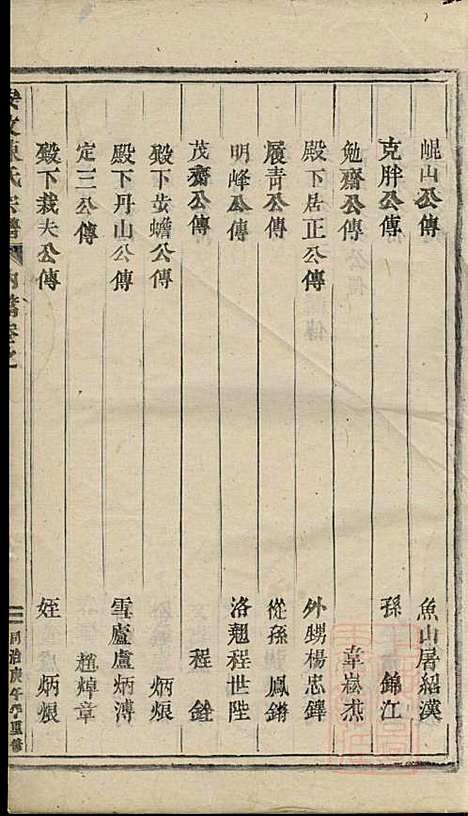 崐山公傳 魚山屠紹漢
克胖公傳 孫 錦江
勉齋公傳 章嶽杰
殿下居正公傳 外甥楊忠鐸
履青公傳 從孫 鳳鏘
明峰公傳 洛翹程世陛
茂齋公傳 程 銓
殿下 蟾公傳 炳烺
殿下丹山公傳 雪廬盧炳溥
定三公傳 趙焯章
殿下栽夫公傳 姪 炳烺
陳氏宗譜 內 卷之 二 同治庚午 重修